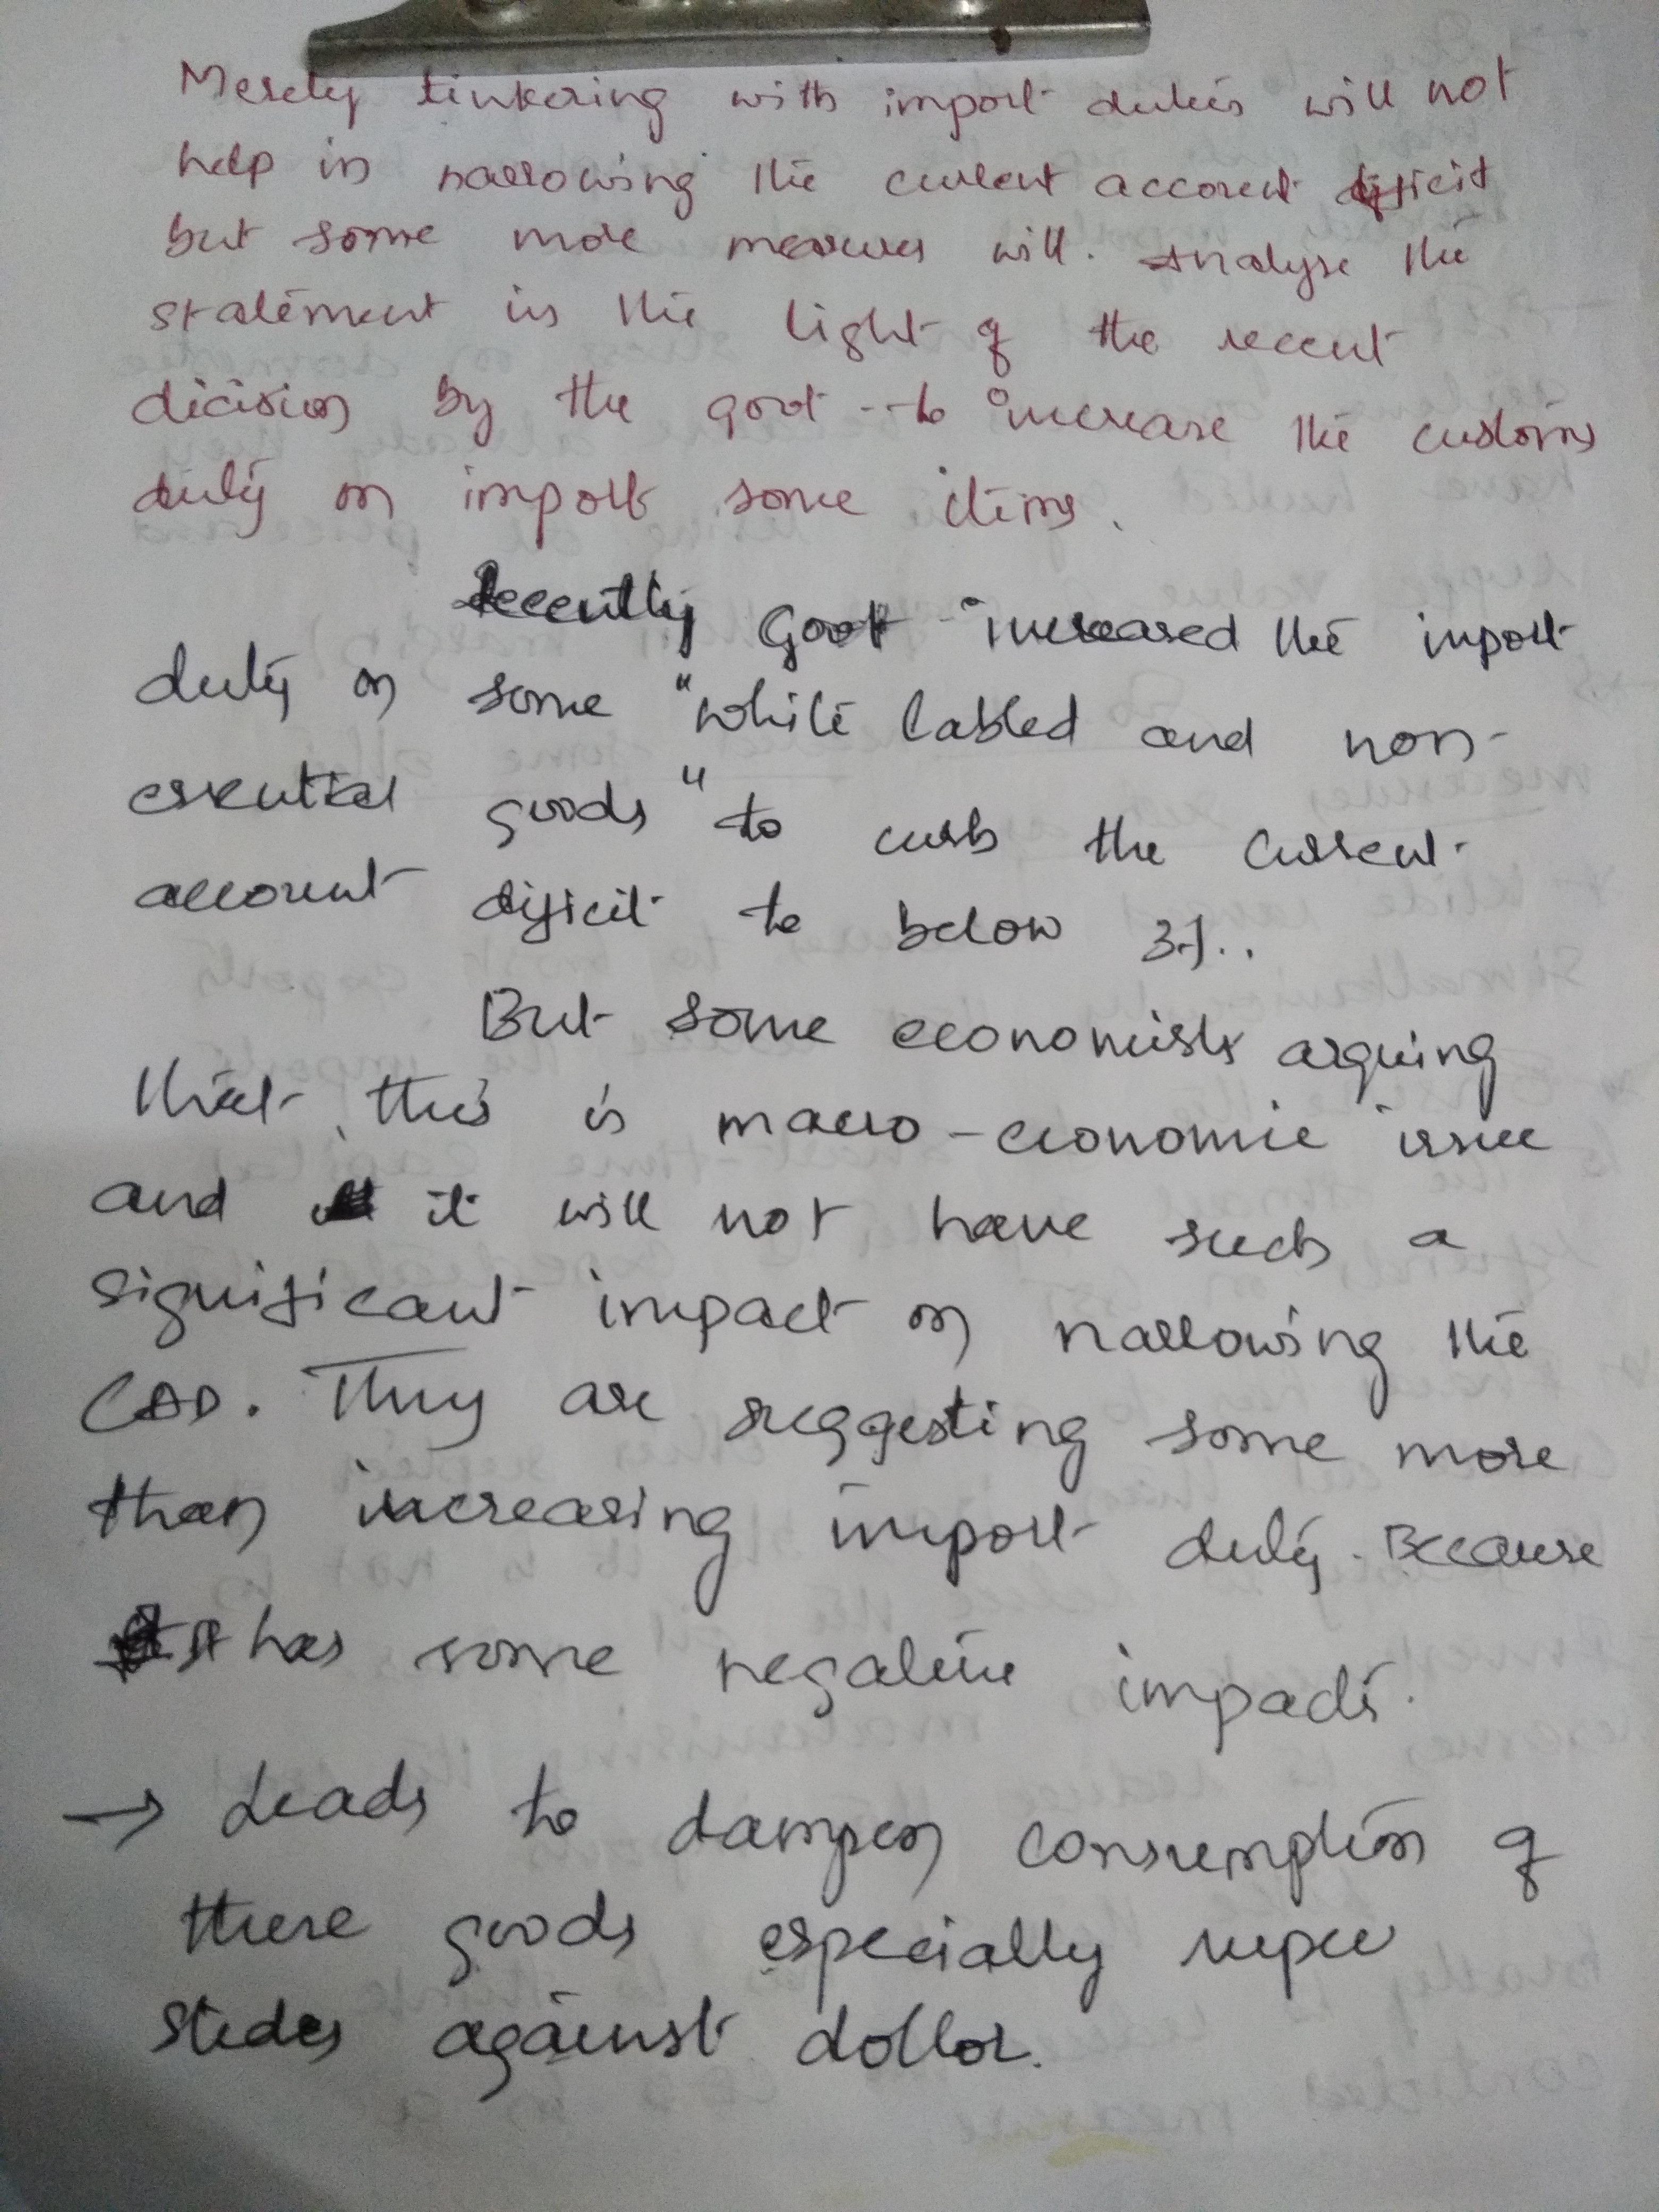 Merely tinkering with import duties will not
help in narrowing the current account deficit
but some more measures will. Analyse the
statement in the light of the recent
dicision by the govt to increase the customs
duty on import some items.
Recently Govt increased the import
duty on some "while labled and non-
essential goods" to curb the current
account dificit to below 3%.
But some economists arguing
that this is macro-economic issue
and it will not have such a
significant impact on narrowing the
CAD. They are suggesting some more
than increasing import duty. Because
It has some negative impacts.
→ Leads to dampen consumption of
these goods especially rupee
slides against dollor.